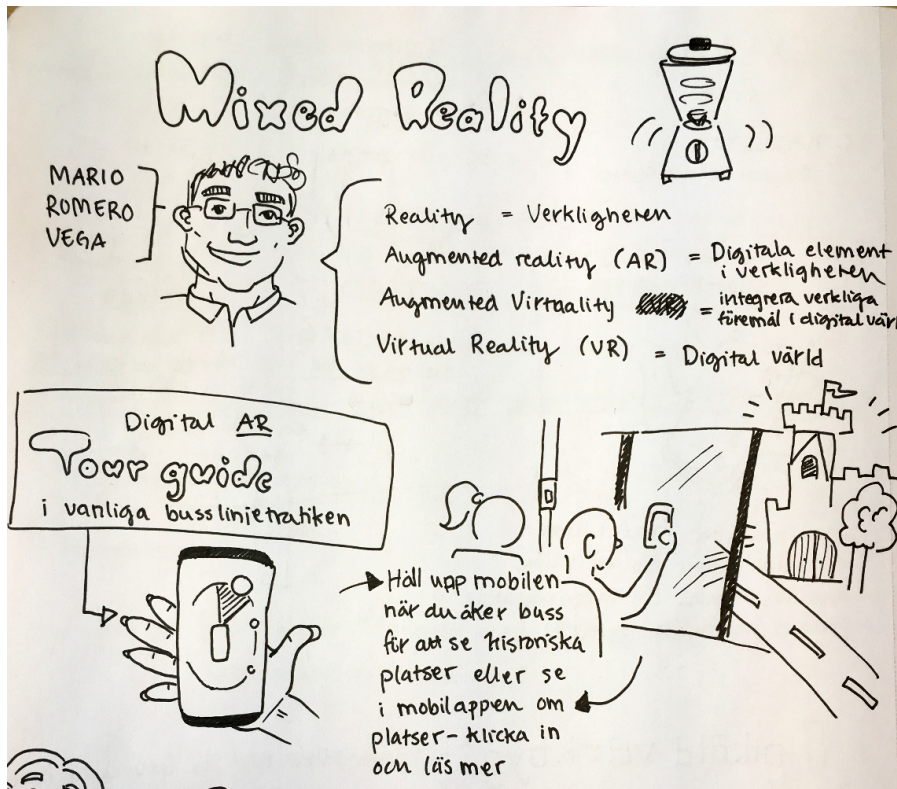 Mixed Reality
MARIO
ROMERO
VEGA
Reality = Verkligheten
Augmented reality (AR) = Digitala element
i verkligheten
Augmented Virtuality = integrera verkliga
föremål i digital värl
Virtual Reality (VR) = Digital värld
Digital AR
Tour guide
i vanliga busslinjetrafiken
Håll upp mobilen
när du åker buss
för att se historiska
platser eller se
i mobilappen om
platser - klicka in
och läs mer